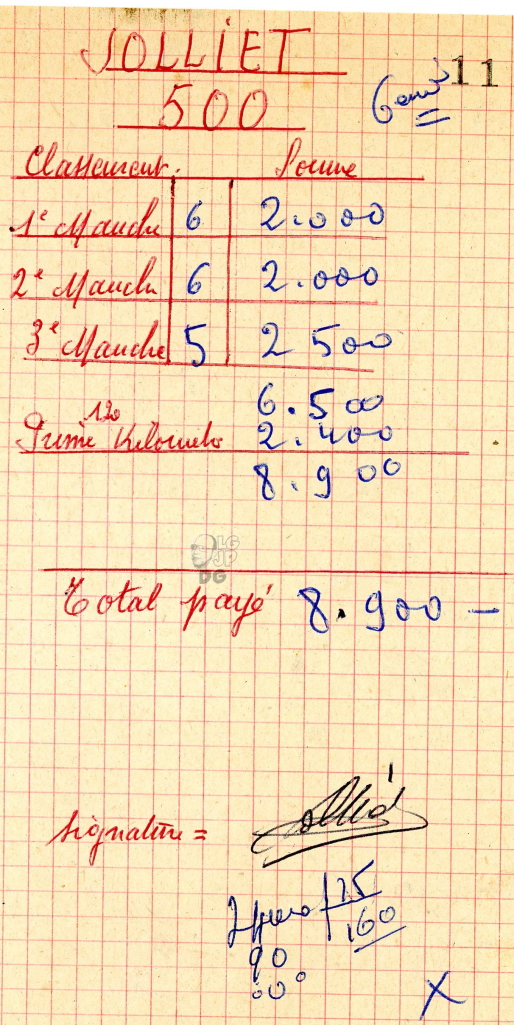 JOLLIET 11
500 6 eme
Classement. Somme
1e Manche 6 2.000
2e Manche 6 2.000
3e Manche 5 2 500
6.500
120
Prime Kilometr 2.400
8.900
LG
JP
DG
Total payé 8.900 —
Signature =
15
160
90
00°
X